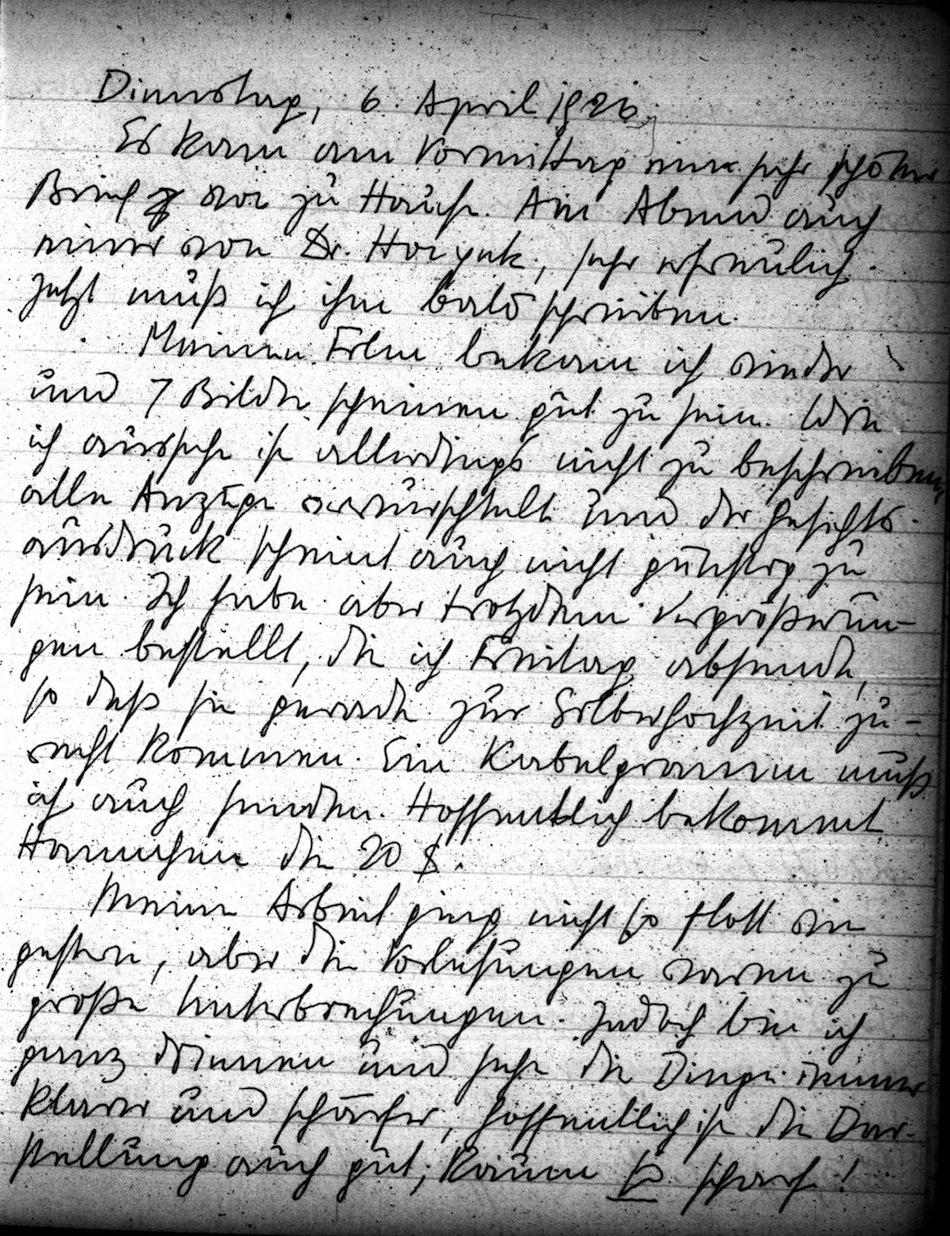 Dienstag, 6. April 1926.
Es kam am Vormittag ein sehr schöner
Brief von zu Hause. Am Abend auch
einer von Dr. sehr erfreulich.
Jetzt muß ich ihm bald schreiben.
Meinen Film bekam ich wieder
und 7 Bilder scheinen gut zu sein. Wie
ich aussehe ist allerdings nicht zu beschreiben,
alle Anzüge verwurschtelt und der Gesichts-
ausdruck scheint auch nicht günstig zu
sein. Ich habe aber trotzdem Vergrößerun-
gen bestellt, die ich Freitag absende,
so daß sie gerade zur Silberhochzeit zu-
recht kommen. Ein Kabelgramm muß
ich auch senden. Hoffentlich bekommt
Hannchen die 20 $.
Meine Arbeit ging nicht so flott wie
gestern, aber die Vorlesungen waren zu
große Unterbrechungen. Jedoch bin ich
ganz drinnen und sehe die Dinge immer
klarer und schärfer, hoffentlich ist die Dar-
stellung auch gut; kaum so scharf!